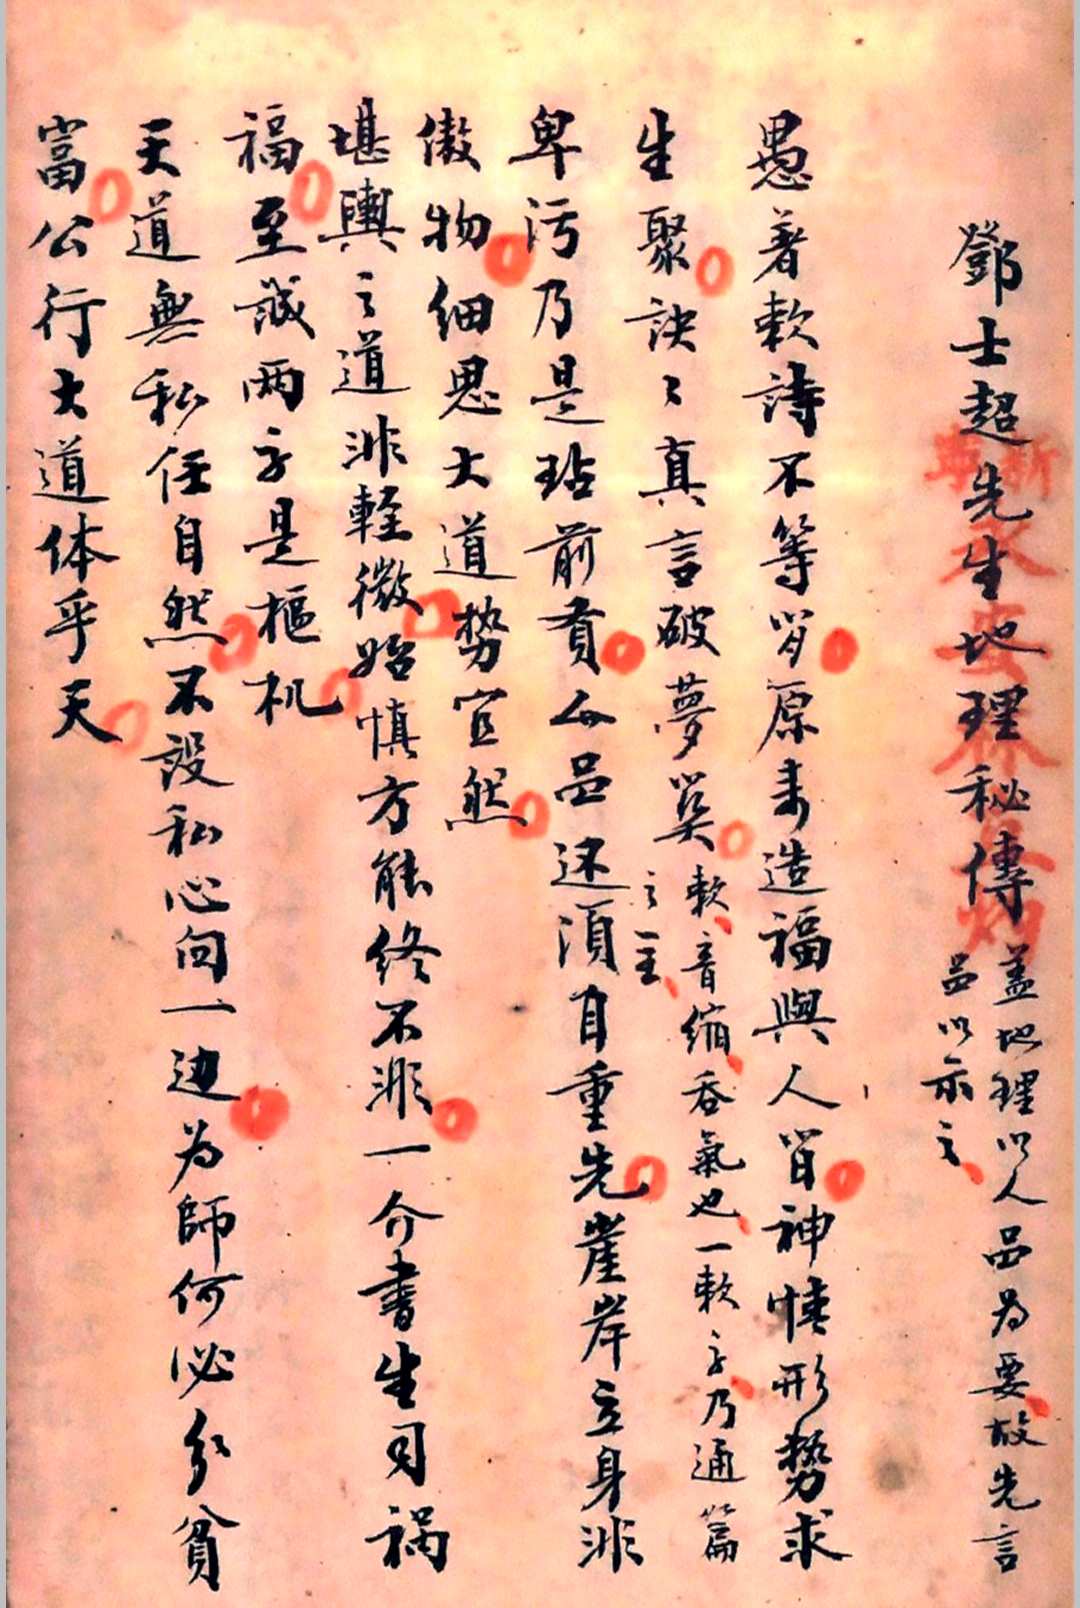 鄧士超先生地理秘傳 蓋地理以人品為要故先言
品以示之
愚著欶詩不等閑原来造福與人皆神情形勢求
生聚訣々真言破夢奠 欶音縮吞氣也一欶字乃通篇
之主
卑污乃是玷前賢人品还須自重先崖岸立身非
傲物细思大道势宜然
堪輿之道非輕微始慎方能终不非一介書生司禍
福至誠两字是樞机
天道無私任自然不設私心向一边为師何必分貧
富公行大道体乎天